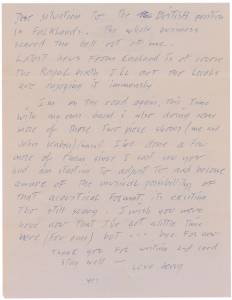 solution to the British position
in Falklands. The whole business
scared the hell out of me.
Latest news from England is of course
the Royal birth I'll bet our locals
are enjoying it immensely
I'm on the road again, this time
with my own band & also doing some
more of these two piece shows (me and
John Kahn) I've done a few
more of them since I saw you
and am starting to adjust to and become
aware of the musical possibility of
that acoustical format, it's exciting
tho still scary. I wish you were
here now that I've got a little time
here (few days) but --- bye for now
Thank you for writing
stay well —
Love Jerry